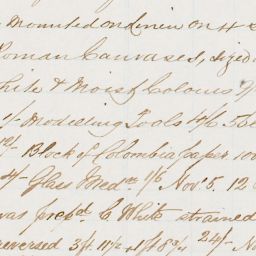 Mounted on Linen on 4 S
Roman Canvases, sized
White & Moist Colours
1/- Modelling Tools 4/6. 56
12/- Block of Columbia paper 100
4/- Glass Med.m 1/6 Nov.r 5. 12
was prep.d C. White strained
reversed 3 ft 10 1/2 x 1 ft 8 3/4 24/- No